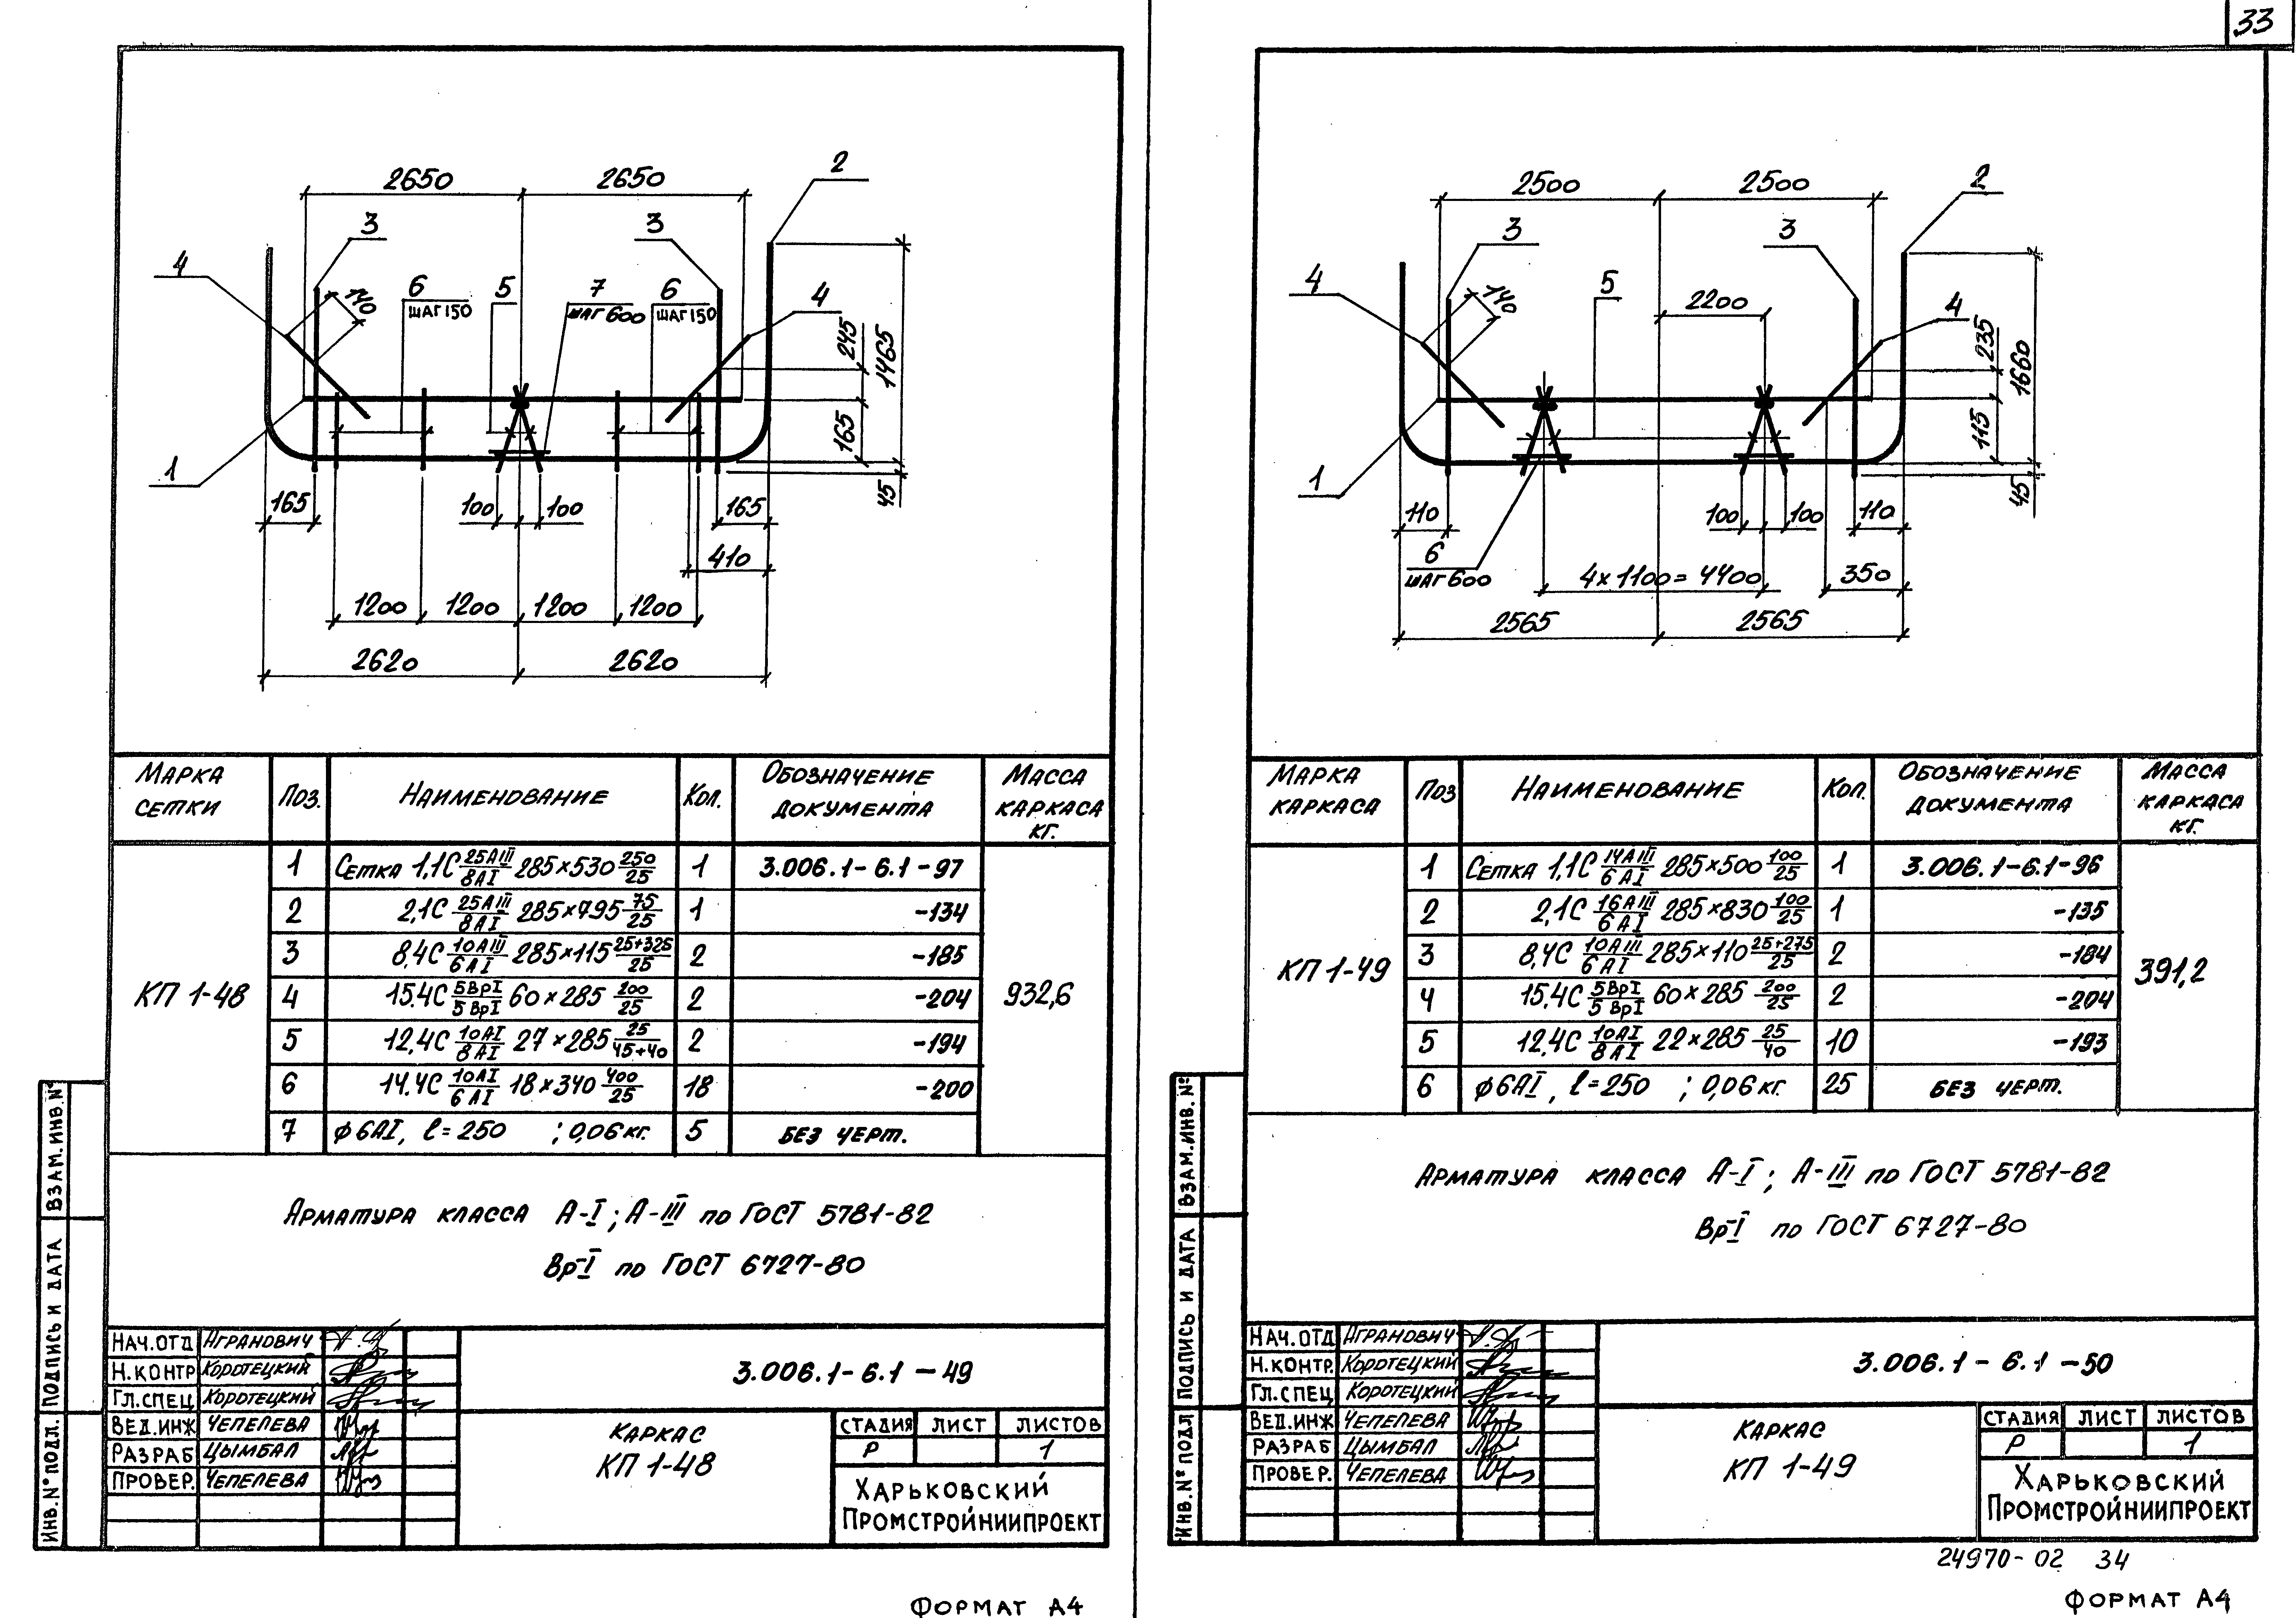 33
2650 2650
2
3 3
4 140
6 ШАГ 150
5
7 ШАГ 600
6 ШАГ 150
4
245
1465
165
45
1
165 100 100 165
410
1200 1200 1200 1200
2620 2620
МАРКА СЕТКИ ПОЗ. НАИМЕНОВАНИЕ КОЛ. ОБОЗНАЧЕНИЕ ДОКУМЕНТА МАССА КАРКАСА КГ.
КП 1-48
1 СЕТКА 1,1С 25АIII/8АI 285×530 250/25 1 3.006.1-6.1-97
2 2,1С 25АIII/8АI 285×795 75/25 1 -134
3 8,4С 10АIII/6АI 285×115 25+325/25 2 -185
4 15.4С 5ВрI/5ВрI 60×285 200/25 2 -204
5 12,4С 10АI/8АI 27×285 25/45+40 2 -194
6 14.4С 10АI/6АI 18×340 400/25 18 -200
7 ϕ6АI, ℓ=250 ; 0,06 кг. 5 БЕЗ ЧЕРТ.
932,6
АРМАТУРА КЛАССА А-I; А-III ПО ГОСТ 5781-82
Вр-I ПО ГОСТ 6727-80
НАЧ.ОТД АГРАНОВИЧ
Н.КОНТР КОРОТЕЦКИЙ
ГЛ.СПЕЦ КОРОТЕЦКИЙ
ВЕД.ИНЖ ЧЕПЕЛЕВА
РАЗРАБ ЦЫМБАЛ
ПРОВЕР. ЧЕПЕЛЕВА
3.006.1-6.1-49
КАРКАС
КП 1-48
СТАДИЯ ЛИСТ ЛИСТОВ
Р 1
ХАРЬКОВСКИЙ
ПРОМСТРОЙНИИПРОЕКТ
ВЗАМ.ИНВ.№
ПОДПИСЬ И ДАТА
ИНВ.№ПОДЛ.
ФОРМАТ А4
2500 2500
2
3 3
4 140
5
2200
4
235
1660
115
45
1
110 100 100 110
6 ШАГ 600
4×1100=4400
350
2565 2565
МАРКА КАРКАСА ПОЗ НАИМЕНОВАНИЕ КОЛ. ОБОЗНАЧЕНИЕ ДОКУМЕНТА МАССА КАРКАСА КГ.
КП 1-49
1 СЕТКА 1,1С 14АIII/6АI 285×500 100/25 1 3.006.1-6.1-96
2 2,1С 16АIII/6АI 285×830 100/25 1 -135
3 8,4С 10АIII/6АI 285×110 25+275/25 2 -184
4 15.4С 5ВрI/5ВрI 60×285 200/25 2 -204
5 12,4С 10АI/8АI 22×285 25/40 10 -193
6 ϕ6АI, ℓ=250 ; 0,06 кг. 25 БЕЗ ЧЕРТ.
391,2
АРМАТУРА КЛАССА А-I; А-III ПО ГОСТ 5781-82
Вр-I ПО ГОСТ 6727-80
НАЧ.ОТД АГРАНОВИЧ
Н.КОНТР. КОРОТЕЦКИЙ
ГЛ.СПЕЦ КОРОТЕЦКИЙ
ВЕД.ИНЖ ЧЕПЕЛЕВА
РАЗРАБ ЦЫМБАЛ
ПРОВЕР. ЧЕПЕЛЕВА
3.006.1-6.1-50
КАРКАС
КП 1-49
СТАДИЯ ЛИСТ ЛИСТОВ
Р 1
ХАРЬКОВСКИЙ
ПРОМСТРОЙНИИПРОЕКТ
ВЗАМ.ИНВ.№
ПОДПИСЬ И ДАТА
ИНВ.№ПОДЛ
24970-02 34
ФОРМАТ А4